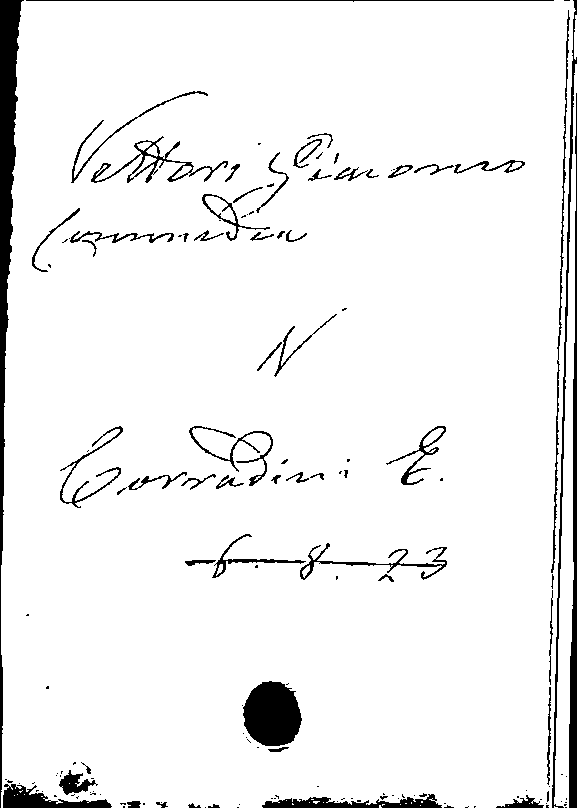 Vettori Giacomo
Commedia
N
Corradini E.
6. 8. 23